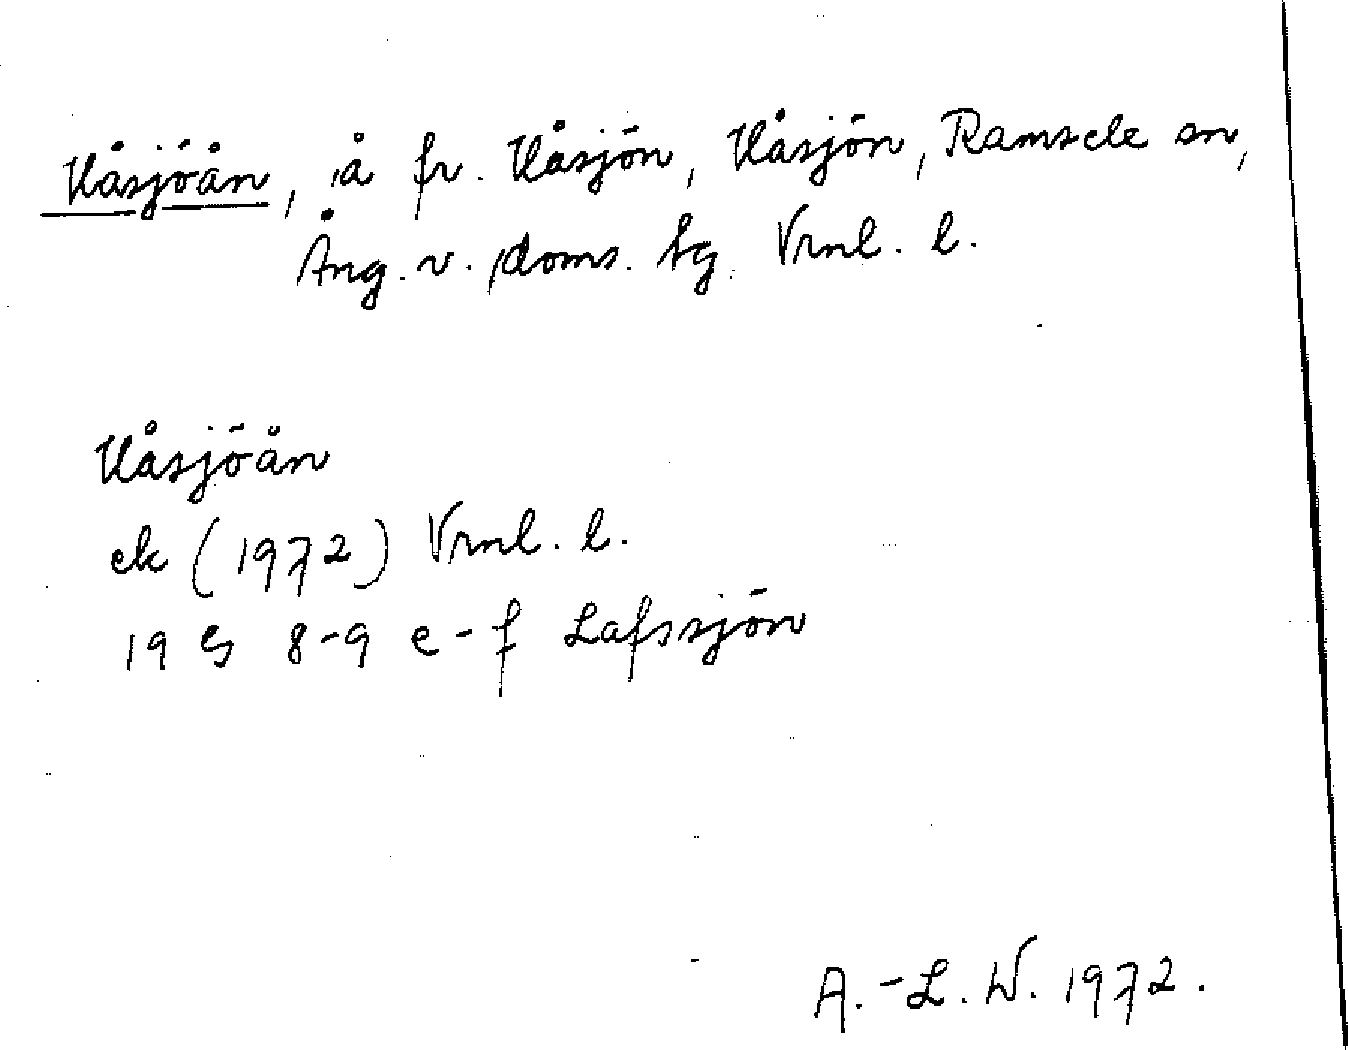 Kåsjöån, å fr. Kåsjön, Kåsjön, Ramsele sn,
Ång. v. doms. tg. Vrnl. l.
Kåsjöån
ek (1972) Vrnl. l.
19 G 8-9 e-f Lafssjön
A.-L. W. 1972.